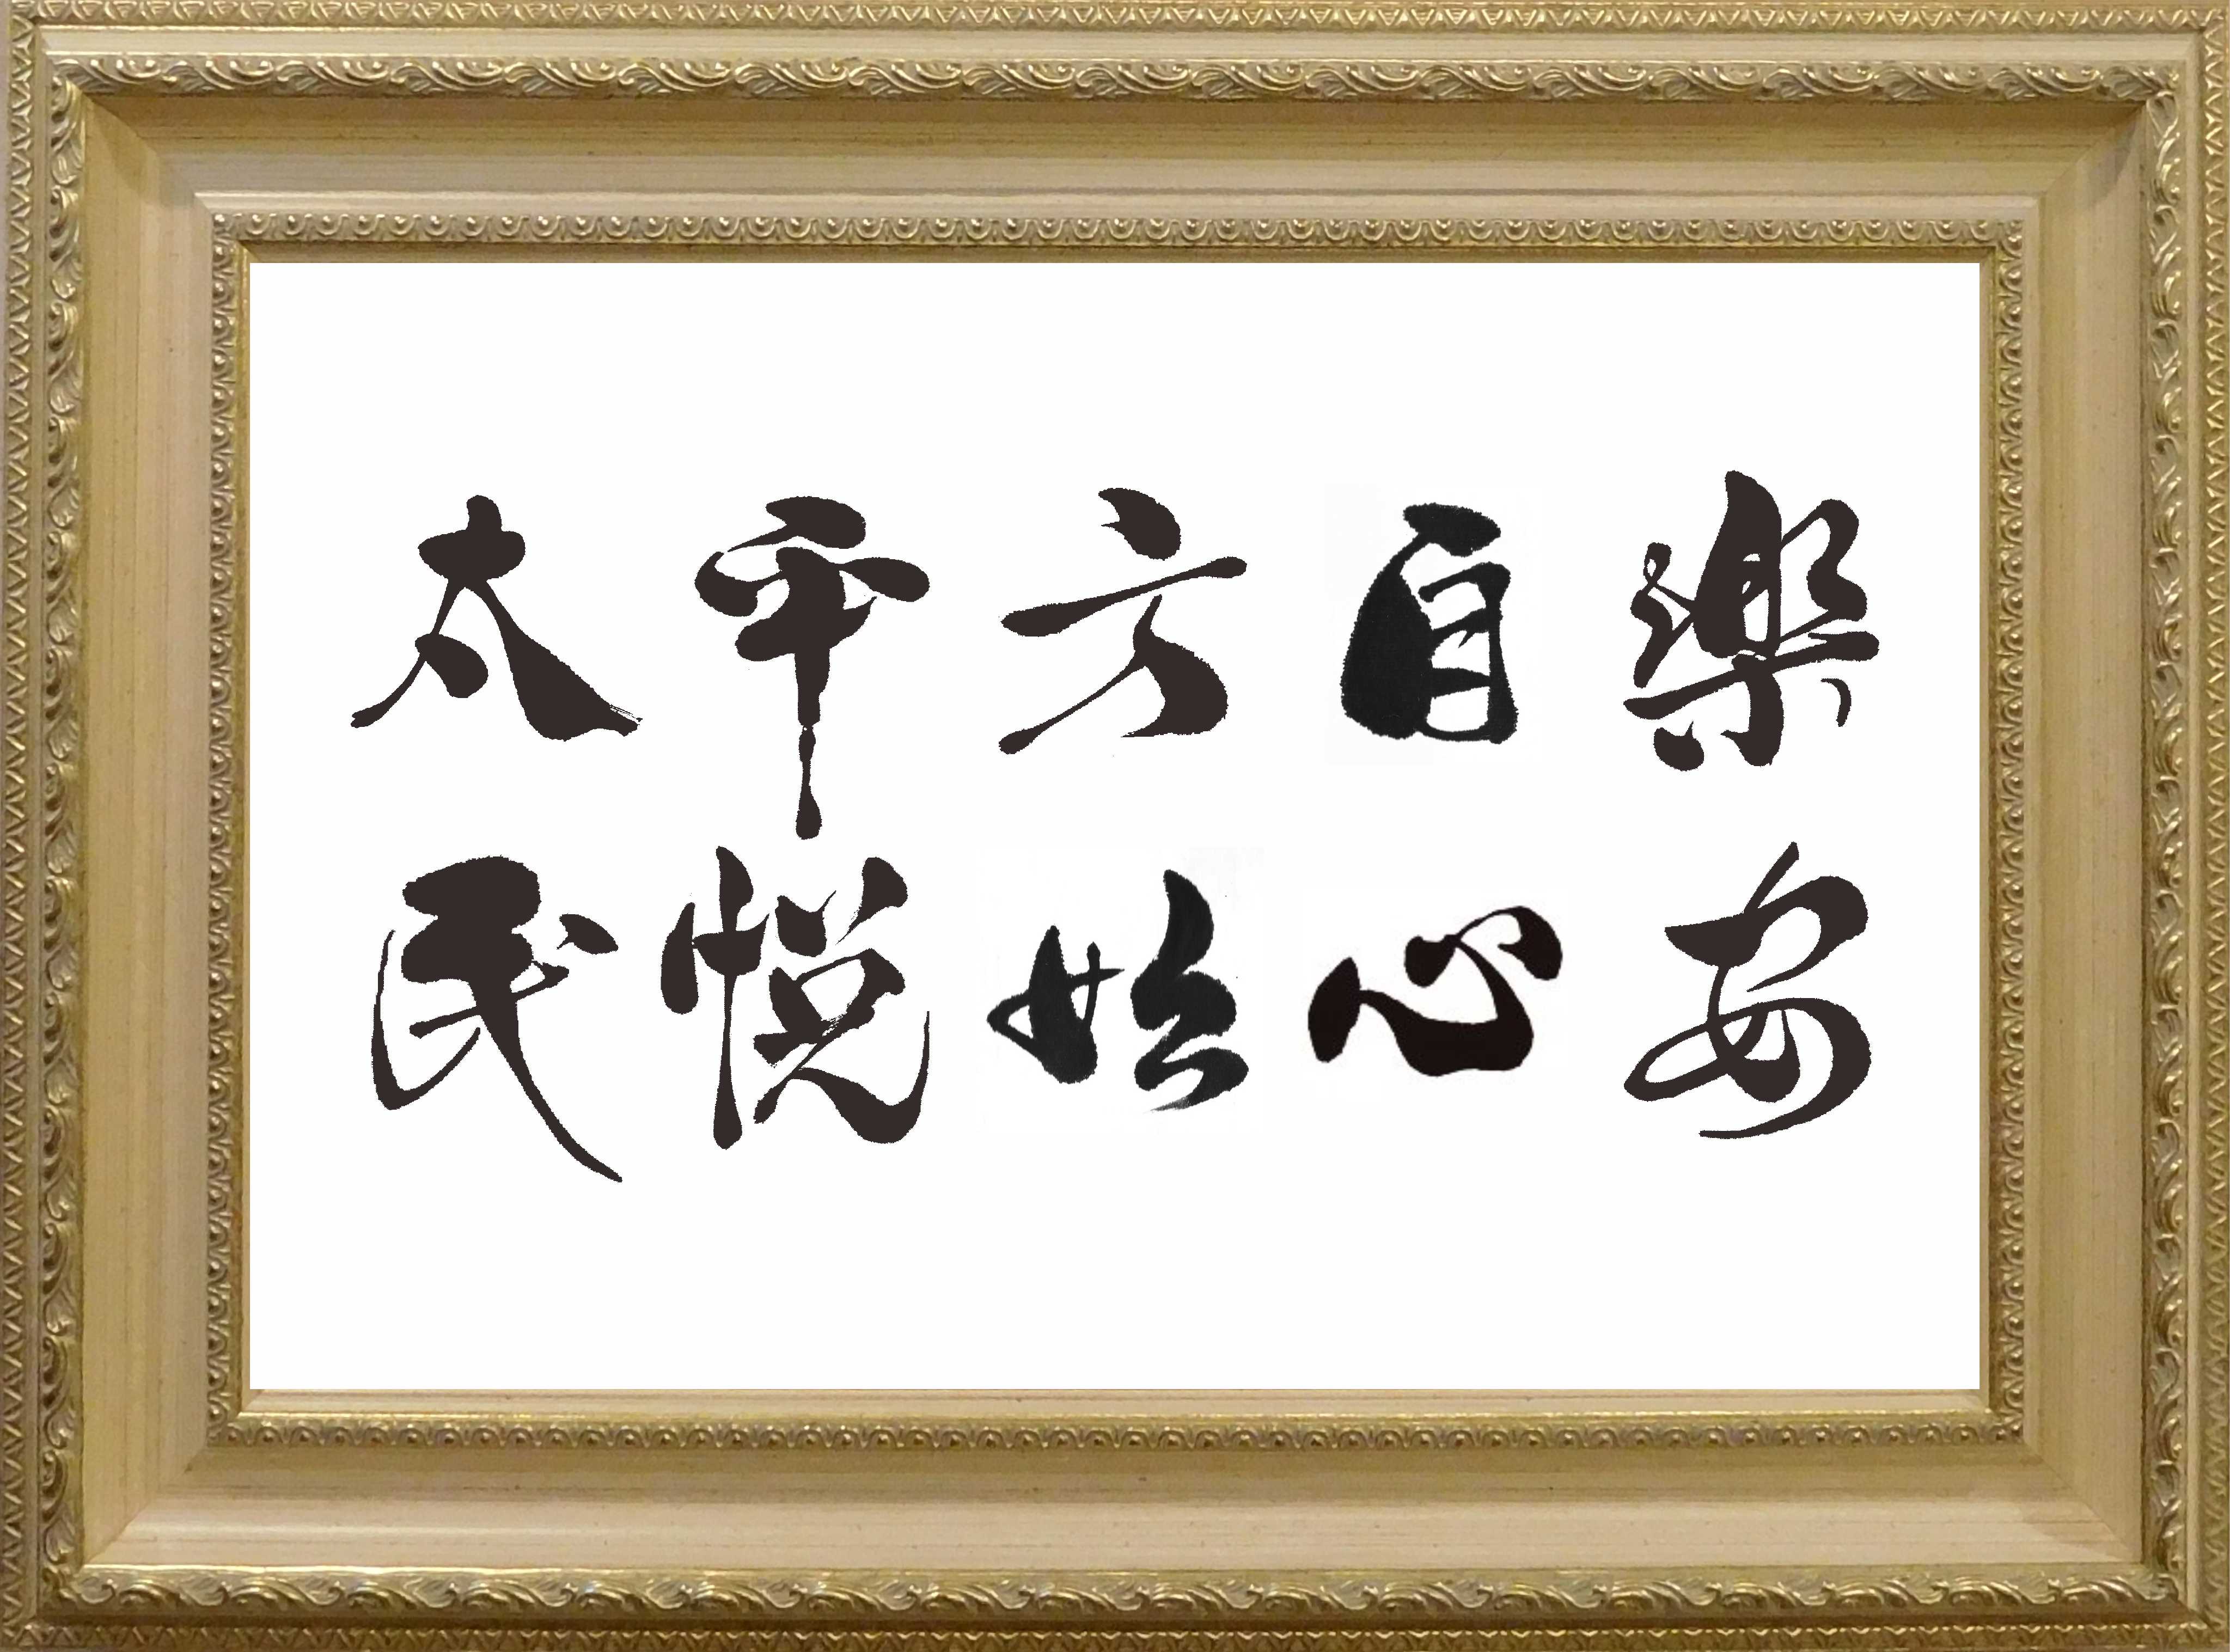 太平方自樂
民悦始心安